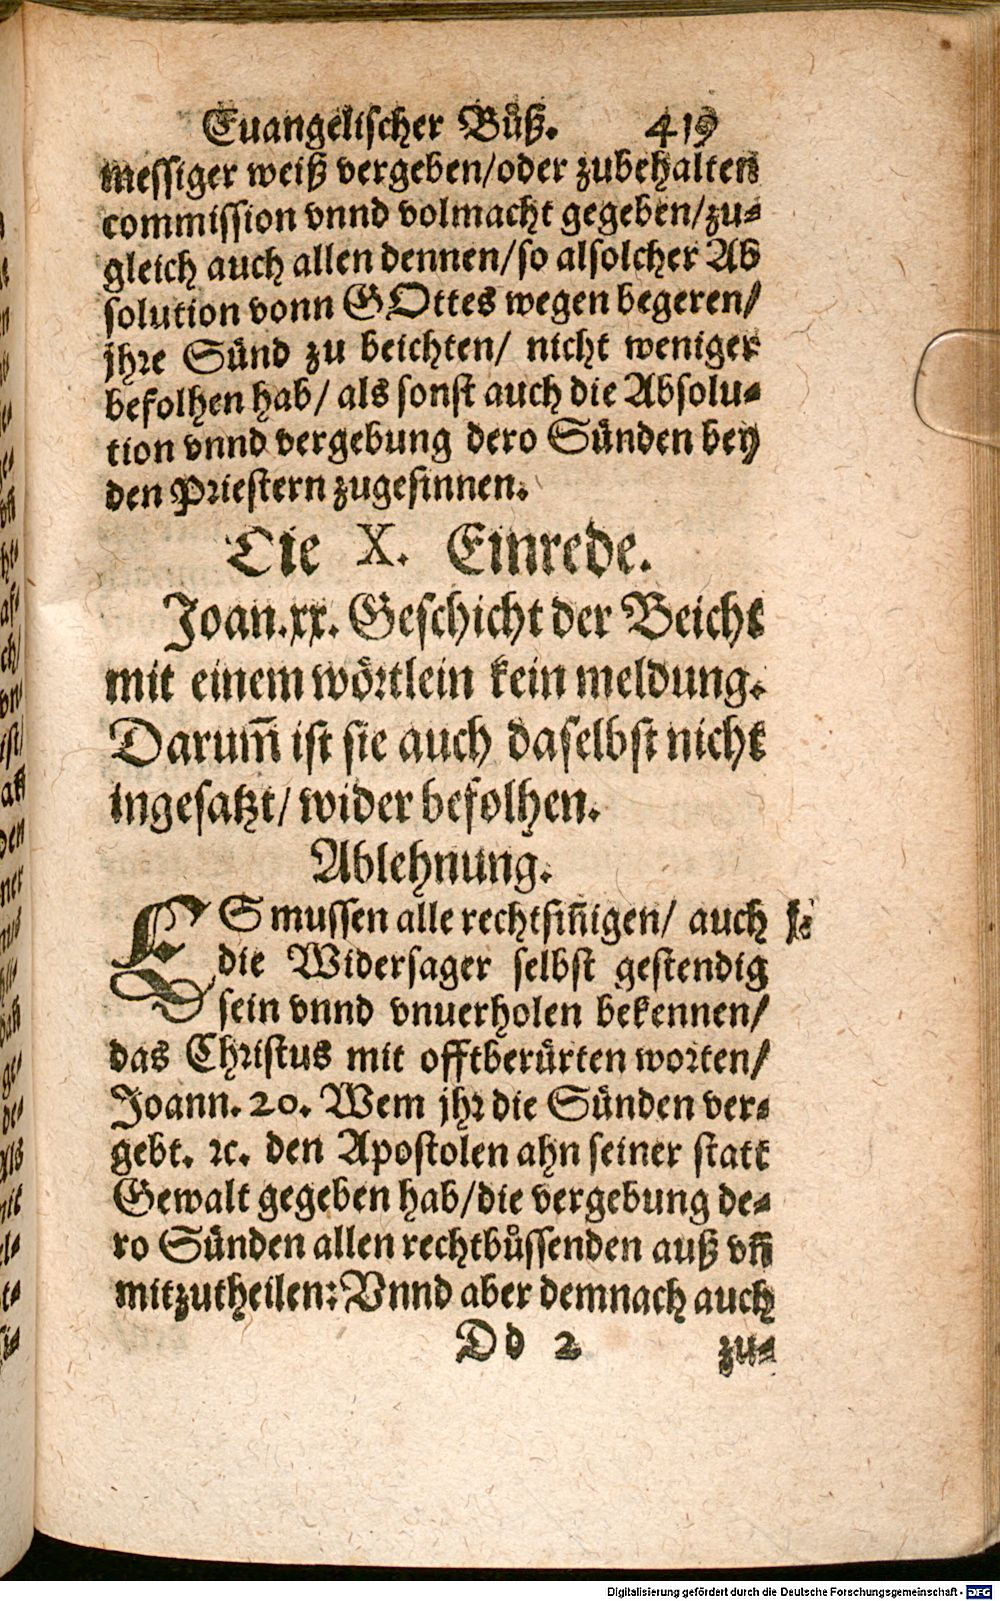 Euangelischer Bůß. 419
messiger weiß vergeben/oder zubehalten
commission vnnd volmacht gegeben/zu-
gleich auch allen dennen/so alsolcher Ab
solution vonn GOttes wegen begeren/
jhre Sünd zu beichten/ nicht weniger
befolhen hab/ als sonst auch die Absolu-
tion vnnd vergebung dero Sünden bey
den Priestern zugesinnen.
Die X. Einrede.
Joan.xx. Geschicht der Beicht
mit einem wörtlein kein meldung.
Darum̄ ist sie auch daselbst nicht
ingesatzt/ wider befolhen.
Ablehnung.
ES mussen alle rechtsiñigen/ auch
die Widersager selbst gestendig
sein vnnd vnuerholen bekennen/
das Christus mit offtberürten worten/
Joann. 20. Wem jhr die Sünden ver-
gebt. ꝛc. den Apostolen ahn seiner statt
Gewalt gegeben hab/die vergebung de-
ro Sünden allen rechtbůssenden auß vñ
mitzutheilen: Vnnd aber demnach auch
Dd 2 zu-
Digitalisierung gefördert durch die Deutsche Forschungsgemeinschaft - DFG